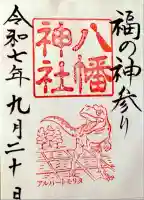 福の神参り
八幡
神社
令和七年九月二十日
アルバートサウルス